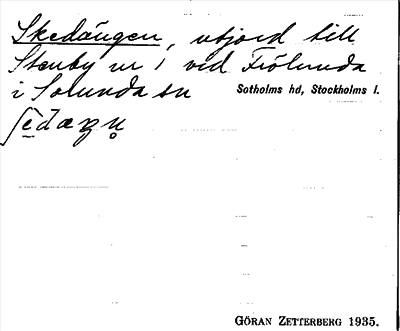 Skedängen, utjord till
Stenby nr 1 vid Frölunda
i Sorunda sn Sotholms hd, Stockholms l.
GÖRAN ZETTERBERG 1935.